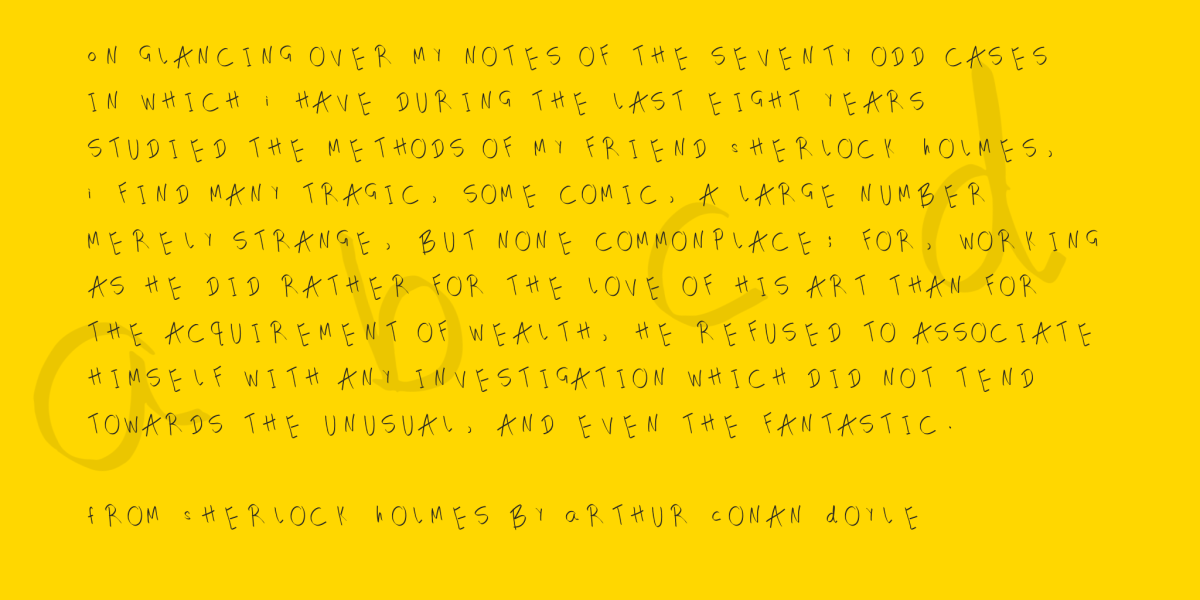 oN GLANCING OVER MY NOTES OF THE SEVENTY ODD CASES
IN WHICH i HAVE DURING THE LAST EIGHT YEARS
STUDIED THE METHODS OF MY FRIEND sHERLOCK hOLMES,
i FIND MANY TRAGIC, SOME COMIC, A LARGE NUMBER
MERELY STRANGE, BUT NONE COMMONPLACE; FOR, WORKING
AS HE DID RATHER FOR THE LOVE OF HIS ART THAN FOR
THE ACQUIREMENT OF WEALTH, HE REFUSED TO ASSOCIATE
HIMSELF WITH ANY INVESTIGATION WHICH DID NOT TEND
TOWARDS THE UNUSUAL, AND EVEN THE FANTASTIC.
fROM sHERLOCK hOLMES BY aRTHUR cONAN dOYLE
a b c d